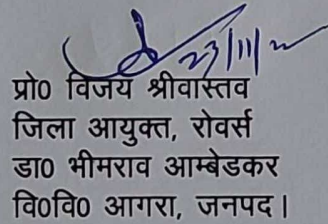 23/11/22
प्रो० विजय श्रीवास्तव
जिला आयुक्त, रोवर्स
डा० भीमराव आम्बेडकर
वि०वि० आगरा, जनपद।